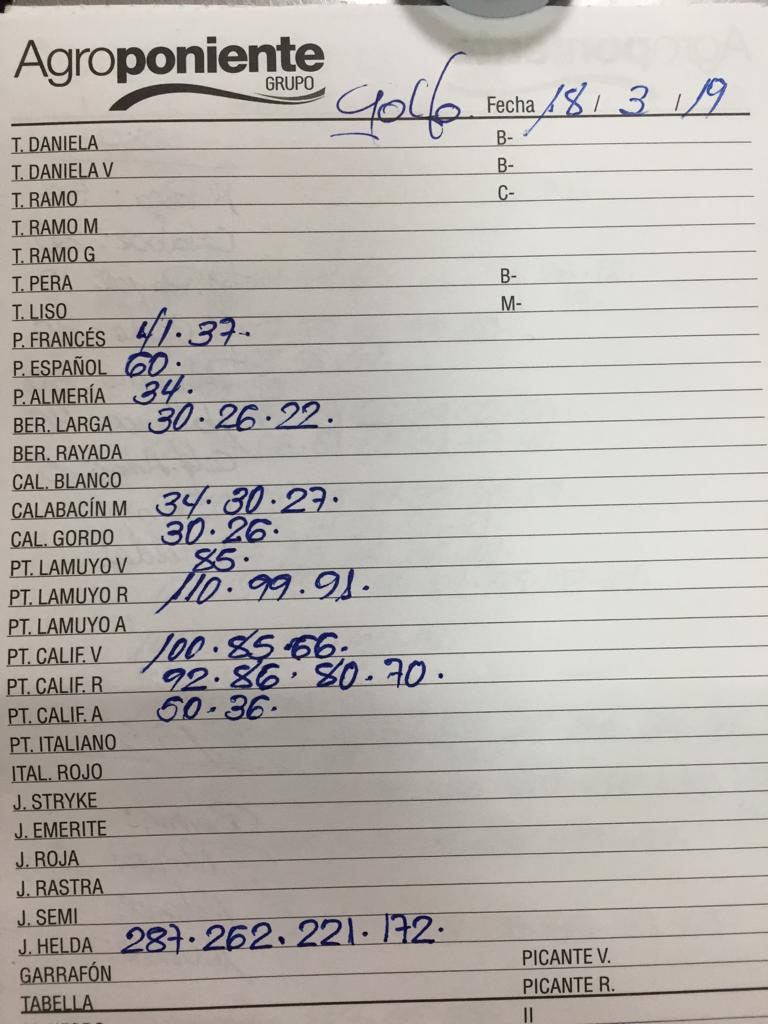 Agroponiente
GRUPO
golfo. Fecha 18 / 3 / 19
T. DANIELA B-
T. DANIELA V B-
T. RAMO C-
T. RAMO M
T. RAMO G
T. PERA B-
T. LISO M-
P. FRANCÉS 41. 37.
P. ESPAÑOL 60.
P. ALMERÍA 34.
BER. LARGA 30. 26. 22.
BER. RAYADA
CAL. BLANCO
CALABACÍN M 34. 30. 27.
CAL. GORDO 30. 26.
PT. LAMUYO V 85.
PT. LAMUYO R 110. 99. 91.
PT. LAMUYO A
PT. CALIF. V 100. 85. 66.
PT. CALIF. R 92. 86. 80. 70.
PT. CALIF. A 50. 36.
PT. ITALIANO
ITAL. ROJO
J. STRYKE
J. EMERITE
J. ROJA
J. RASTRA
J. SEMI
J. HELDA 287. 262. 221. 172.
GARRAFÓN PICANTE V.
TABELLA PICANTE R.
II